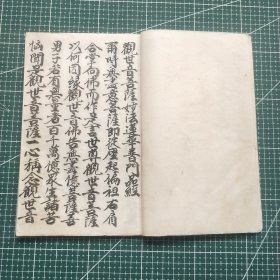 觀世音菩薩妙法蓮華普門品經
爾時無盡意菩薩即從座起偏袒右肩
合掌向佛而作是言世尊觀世音菩薩
以何因緣觀世音佛告無盡意菩薩善
男子若有無量百千萬億眾生受諸苦
惱聞是觀世音菩薩一心稱名觀世音